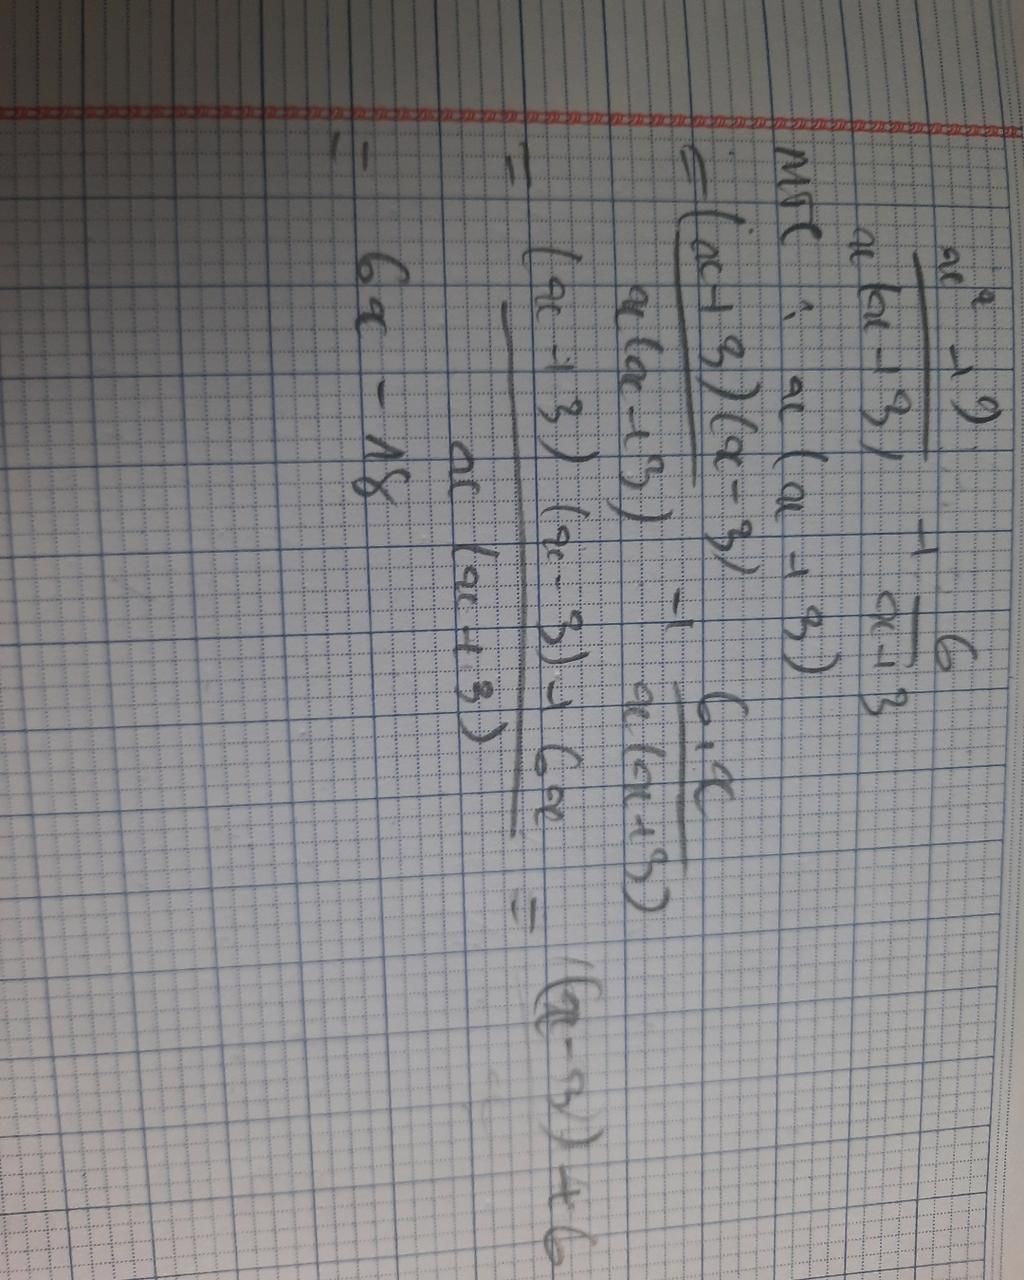 x² + 9 / x(x+3) + 6 / x+3
MTC : x (x + 3)
= (x+3)(x-3) / x(x+3) + 6.x / x(x+3)
= (x+3) (x-3) + 6x / x (x+3) = (x-3) + 6
= 6x - 18